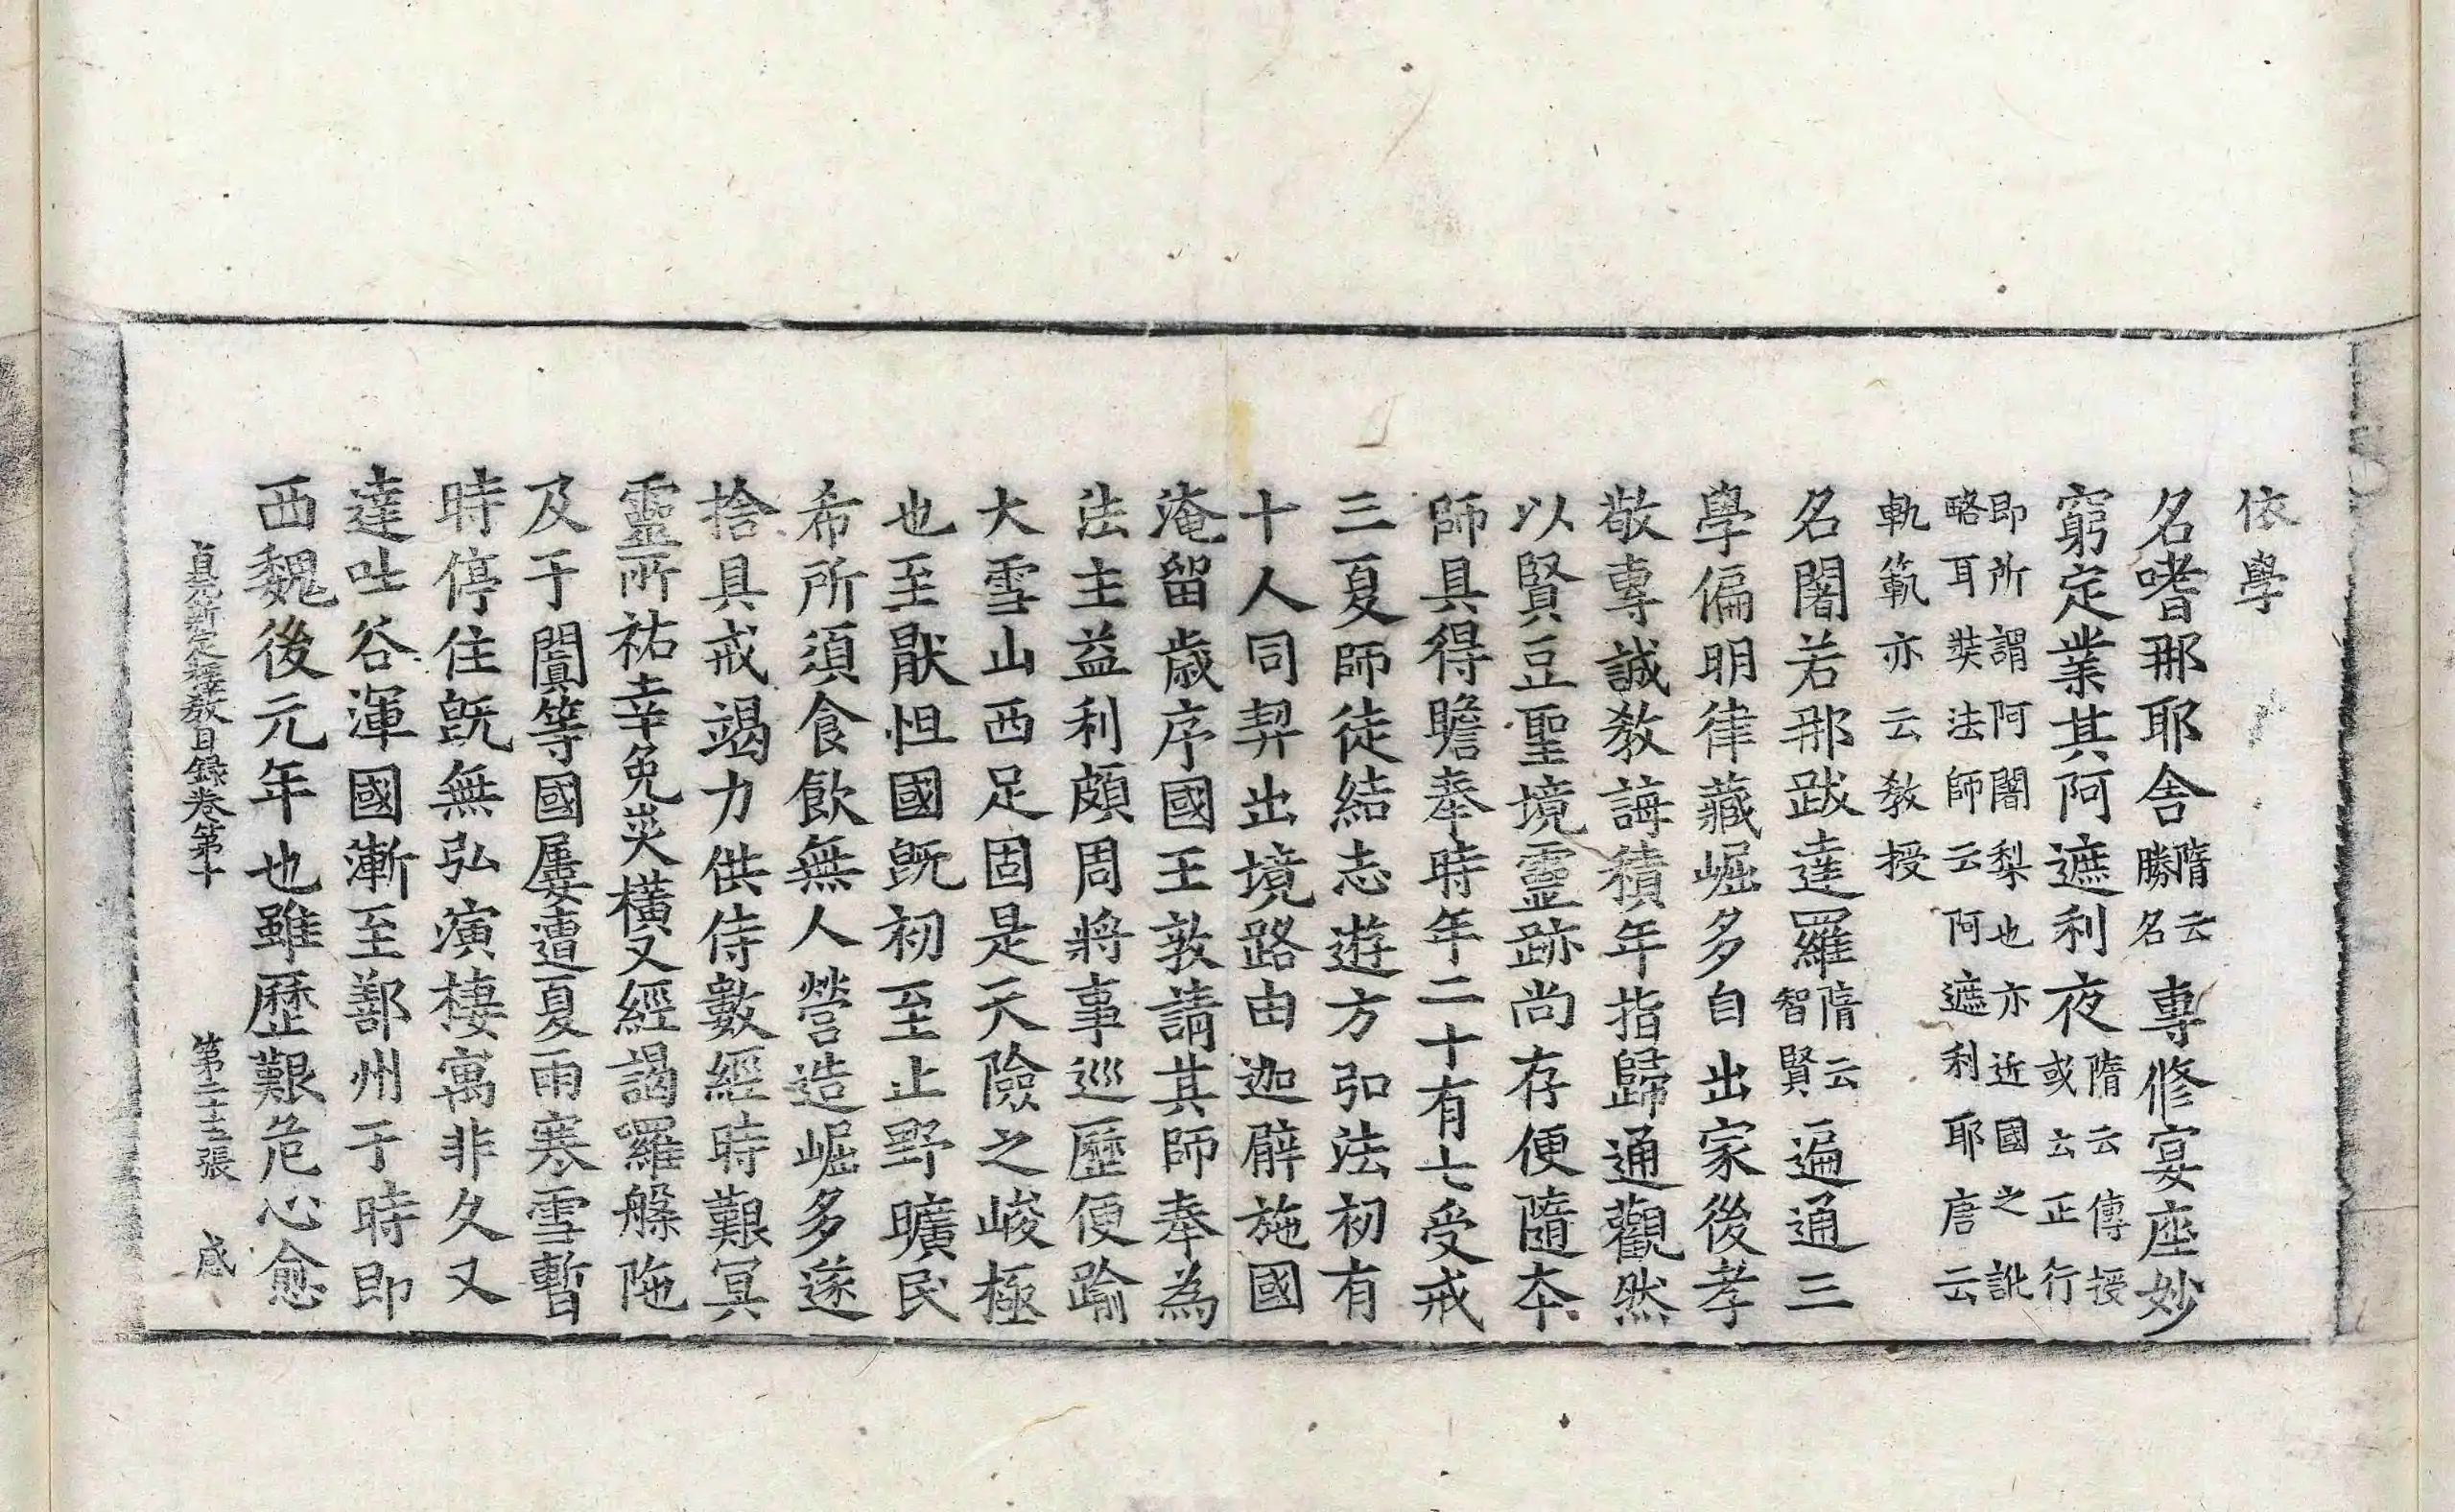 依學
名嗜那耶舍隋云勝名專修宴座妙
窮定業其阿遮利夜隋云傳授或云正行
即所謂阿闍梨也亦近國之訛
略耳奘法師云阿遮利耶唐云
軌範亦云教授
名闍若那跋達羅隋云智賢遍通三
學偏明律藏崛多自出家後孝
敬專誠教誨積年指歸通觀然
以賢豆聖境靈跡尚存便隨本
師具得瞻奉時年二十有七受戒
三夏師徒結志遊方弘法初有
十人同契出境路由迦臂施國
淹留歲序國王敦請其師奉為
法主益利頗周將事巡歷便踰
大雪山西足固是天險之峻極
也至猒怛國既初至止野曠民
希所須食飲無人營造崛多遂
捨具戒竭力供侍數經時艱冥
靈所祐幸免災橫又經謁羅槃陁
及于闐等國屢遭夏雨寒雪暫
時停住既無弘演棲寓非久又
達吐谷渾國漸至鄯州于時即
西魏後元年也雖歷艱危心愈
貞元新定釋教目錄卷第十 第二十三張 感